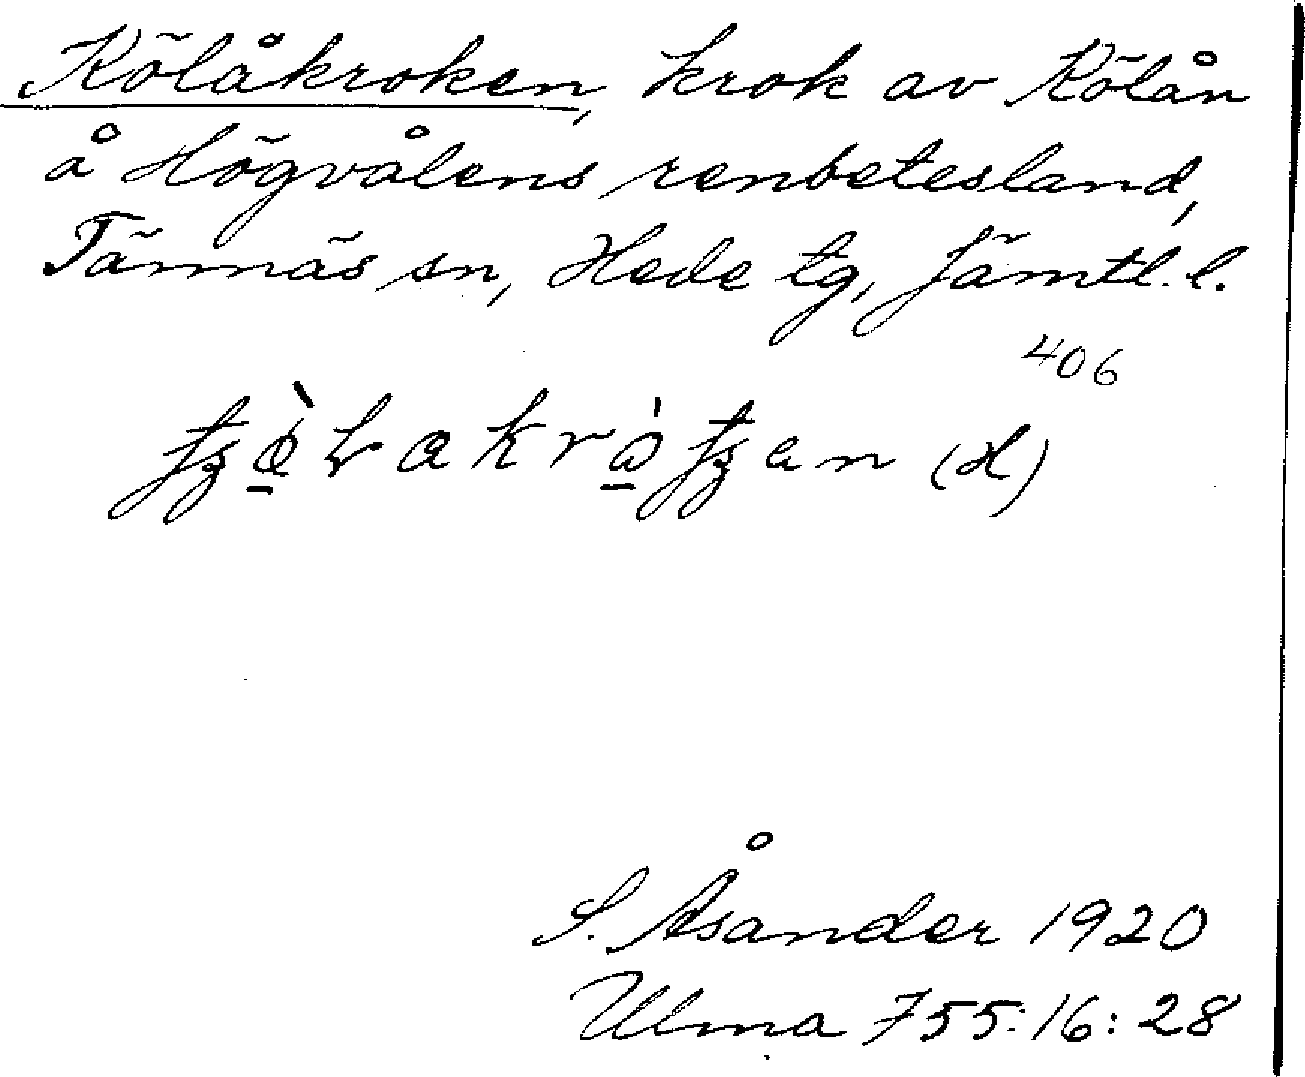 Kölåkroken, krok av Kölån
å Högvålens renbetesland,
Tännäs sn, Hede tg, Jämtl. l.
406
(H)
S. Åsander 1920
Ulma 755:16:28